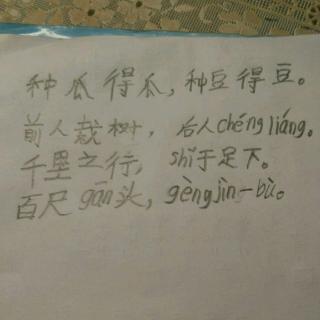 种瓜得瓜,种豆得豆。
前人栽树,后人chéng liáng。
千里之行,shǐ于足下。
百尺gān头,gèng jìn一bù。